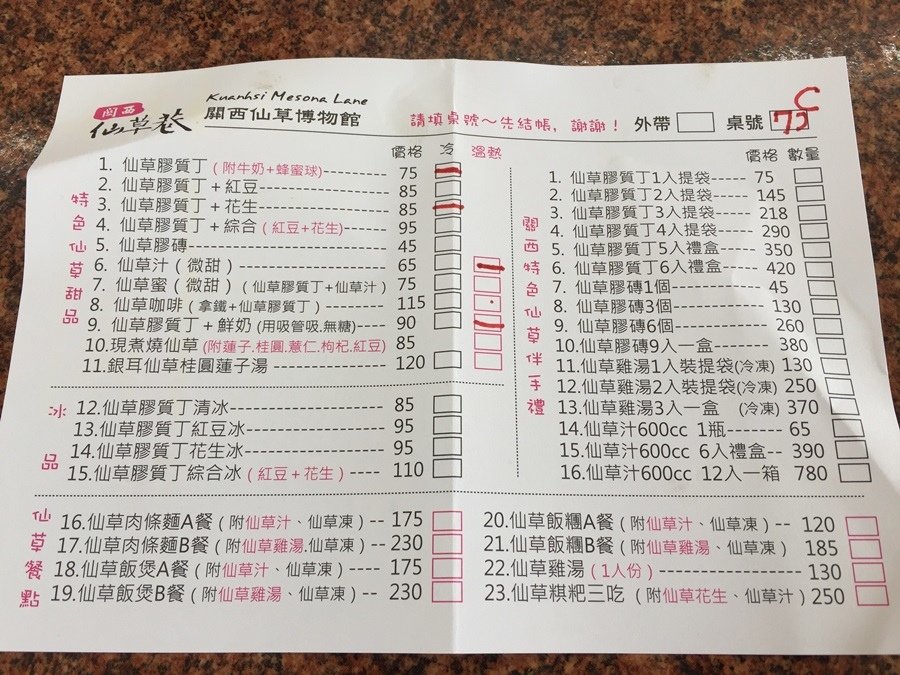 關西
仙草巷
Kuanhsi Mesona Lane
關西仙草博物館
請填桌號～先結帳, 謝謝！ 外帶 桌號 72 C
價格 冷 溫熱
特色仙草甜品
1. 仙草膠質丁 (附牛奶+蜂蜜球)------------ 75
2. 仙草膠質丁+紅豆---------------------- 85
3. 仙草膠質丁+花生---------------------- 85
4. 仙草膠質丁+綜合 (紅豆+花生)------- 95
5. 仙草膠磚----------------------------- 45
6. 仙草汁 (微甜) ----------------------- 65
7. 仙草蜜 (微甜) (仙草膠質丁+仙草汁) 75
8. 仙草咖啡 (拿鐵+仙草膠質丁) -------- 115
9. 仙草膠質丁+鮮奶 (用吸管吸.無糖)---- 90
10.現煮燒仙草 (附蓮子.桂圓.薏仁.枸杞.紅豆) 85
11.銀耳仙草桂圓蓮子湯 --------------- 120
冰品
12.仙草膠質丁清冰-------------------- 85
13.仙草膠質丁紅豆冰------------------ 95
14.仙草膠質丁花生冰------------------ 95
15.仙草膠質丁綜合冰 (紅豆+花生) ---- 110
價格 數量
關西特色仙草伴手禮
1. 仙草膠質丁1入提袋----- 75
2. 仙草膠質丁2入提袋----- 145
3. 仙草膠質丁3入提袋----- 218
4. 仙草膠質丁4入提袋---- 290
5. 仙草膠質丁5入禮盒---- 350
6. 仙草膠質丁6入禮盒---- 420
7. 仙草膠磚1個----------- 45
8. 仙草膠磚3個----------- 130
9. 仙草膠磚6個----------- 260
10.仙草膠磚9入一盒------ 380
11.仙草雞湯1入裝提袋(冷凍) 130
12.仙草雞湯2入裝提袋(冷凍) 250
13.仙草雞湯3入一盒 (冷凍) 370
14.仙草汁600cc 1瓶------- 65
15.仙草汁600cc 6入禮盒-- 390
16.仙草汁600cc 12入一箱 780
仙草餐點
16.仙草肉條麵A餐 (附仙草汁、仙草凍) -- 175
17.仙草肉條麵B餐 (附仙草雞湯.仙草凍) -- 230
18.仙草飯煲A餐 (附仙草汁、仙草凍) ---- 175
19.仙草飯煲B餐 (附仙草雞湯、仙草凍) -- 230
20.仙草飯糰A餐 (附仙草汁、仙草凍) --- 120
21.仙草飯糰B餐 (附仙草雞湯、仙草凍) 185
22.仙草雞湯 (1人份) ------------------ 130
23.仙草粿粑三吃 (附仙草花生、仙草汁) 250